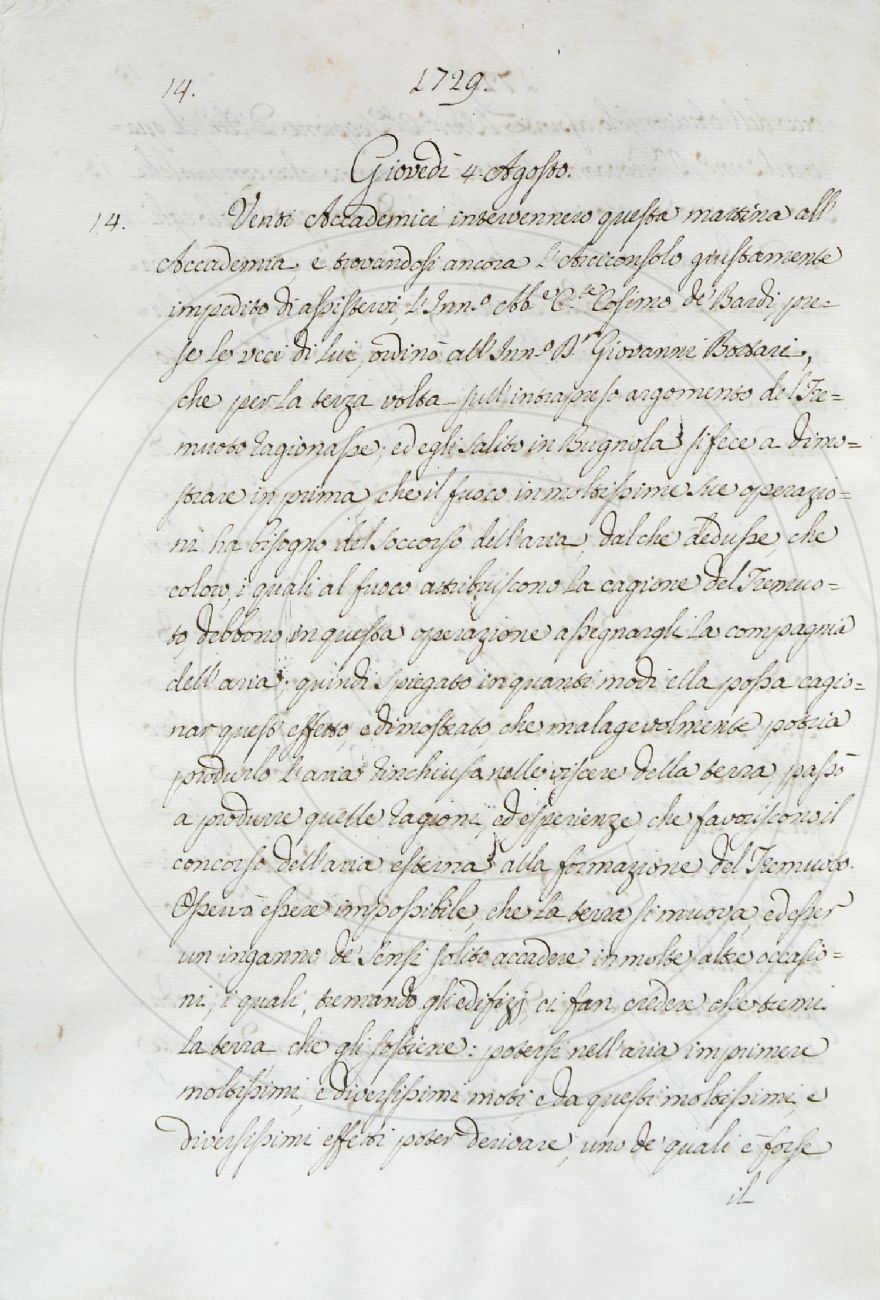 14. 1729.
Giovedì 4. Agosto.
14. Venti Accademici intervennero questa mattina all'
Accademia, e trovandosi ancora l'Arciconsolo giustamente
impedito di assistervi, l'Inn.o Abb.e C.te Cosimo de' Bardi, pre=
se le veci di lui, ordinò all'Inn.o D.re Giovanni Bottari,
che per la terza volta sull'intrapreso argomento del Tre=
muoto ragionasse; ed egli salito in Bugnola si fece a dimo=
strare in prima che il fuoco in moltissime sue operazio=
ni ha bisogno del soccorso dell'aria, dal che dedusse, che
coloro, i quali al fuoco attribuiscono la cagione del Tremuo=
to debbono in questa operazione assegnargli la compagnia
dell'aria; quindi spiegato in quanti modi ella possa cagio=
nar quest'effetto, e dimostrato, che malagevolmente potria
produrlo l'aria rinchiusa nelle viscere della terra, passò
a produrre quelle ragioni, ed esperienze che favoriscono il
concorso dell'aria esterna alla formazione del Tremuoto.
Osservò essere impossibile, che la terra si muova, ed esser
un inganno de' sensi solito accadere in molte altre occasio=
ni, i quali, tremando gli edifizj, ci fan credere che tremi
la terra che gli sostiene: potersi nell'aria imprimere
moltissimi, e diversissimi moti e da questi moltissimi, e
diversissimi effetti poter derivare, uno de' quali è forse
il